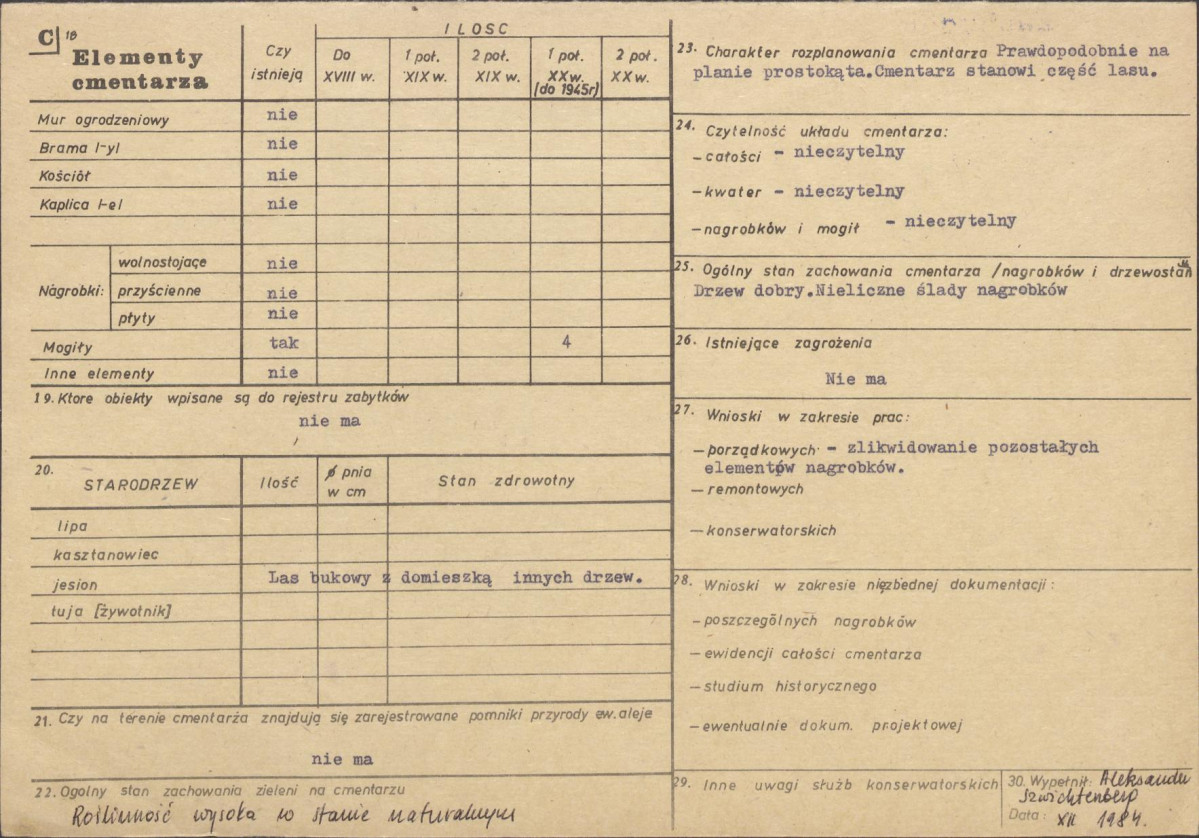 C 18
Elementy
cmentarza
Czy
istnieją
ILOSC
Do
XVIII w.
1 poł.
XIX w.
2 poł.
XIX w.
1 poł.
XX w.
(do 1945r)
2 poł.
XX w.
Mur ogrodzeniowy nie
Brama /-y/ nie
Kościół nie
Kaplica /-e/ nie
Nagrobki:
wolnostojące nie
przyścienne nie
płyty nie
Mogiły tak 4
Inne elementy nie
19. Ktore obiekty wpisane są do rejestru zabytków
nie ma
20.
STARODRZEW
Ilość
ø pnia
w cm
Stan zdrowotny
lipa
kasztanowiec
jesion Las bukowy z domieszką innych drzew.
tuja [żywotnik]
21. Czy na terenie cmentarża znajdują się zarejestrowane pomniki przyrody ew. aleje
nie ma
22. Ogolny stan zachowania zieleni na cmentarzu
Roślinność wysoka w stanie naturalnym
23. Charakter rozplanowania cmentarza Prawdopodobnie na
planie prostokąta.Cmentarz stanowi część lasu.
24. Czytelność układu cmentarza:
- całości - nieczytelny
- kwater - nieczytelny
- nagrobków i mogił - nieczytelny
25. Ogólny stan zachowania cmentarza /nagrobków i drzewostan
Drzew dobry.Nieliczne ślady nagrobków
26. Istniejące zagrożenia
Nie ma
27. Wnioski w zakresie prac:
- porządkowych - zlikwidowanie pozostałych
elementów nagrobków.
- remontowych
- konserwatorskich
28. Wnioski w zakresie niezbędnej dokumentacji:
- poszczególnych nagrobków
- ewidencji całości cmentarza
- studium historycznego
- ewentualnie dokum. projektowej
29. Inne uwagi służb konserwatorskich
30. Wypełnił: Aleksander
Szwichtenberg
Data: XII 1984.